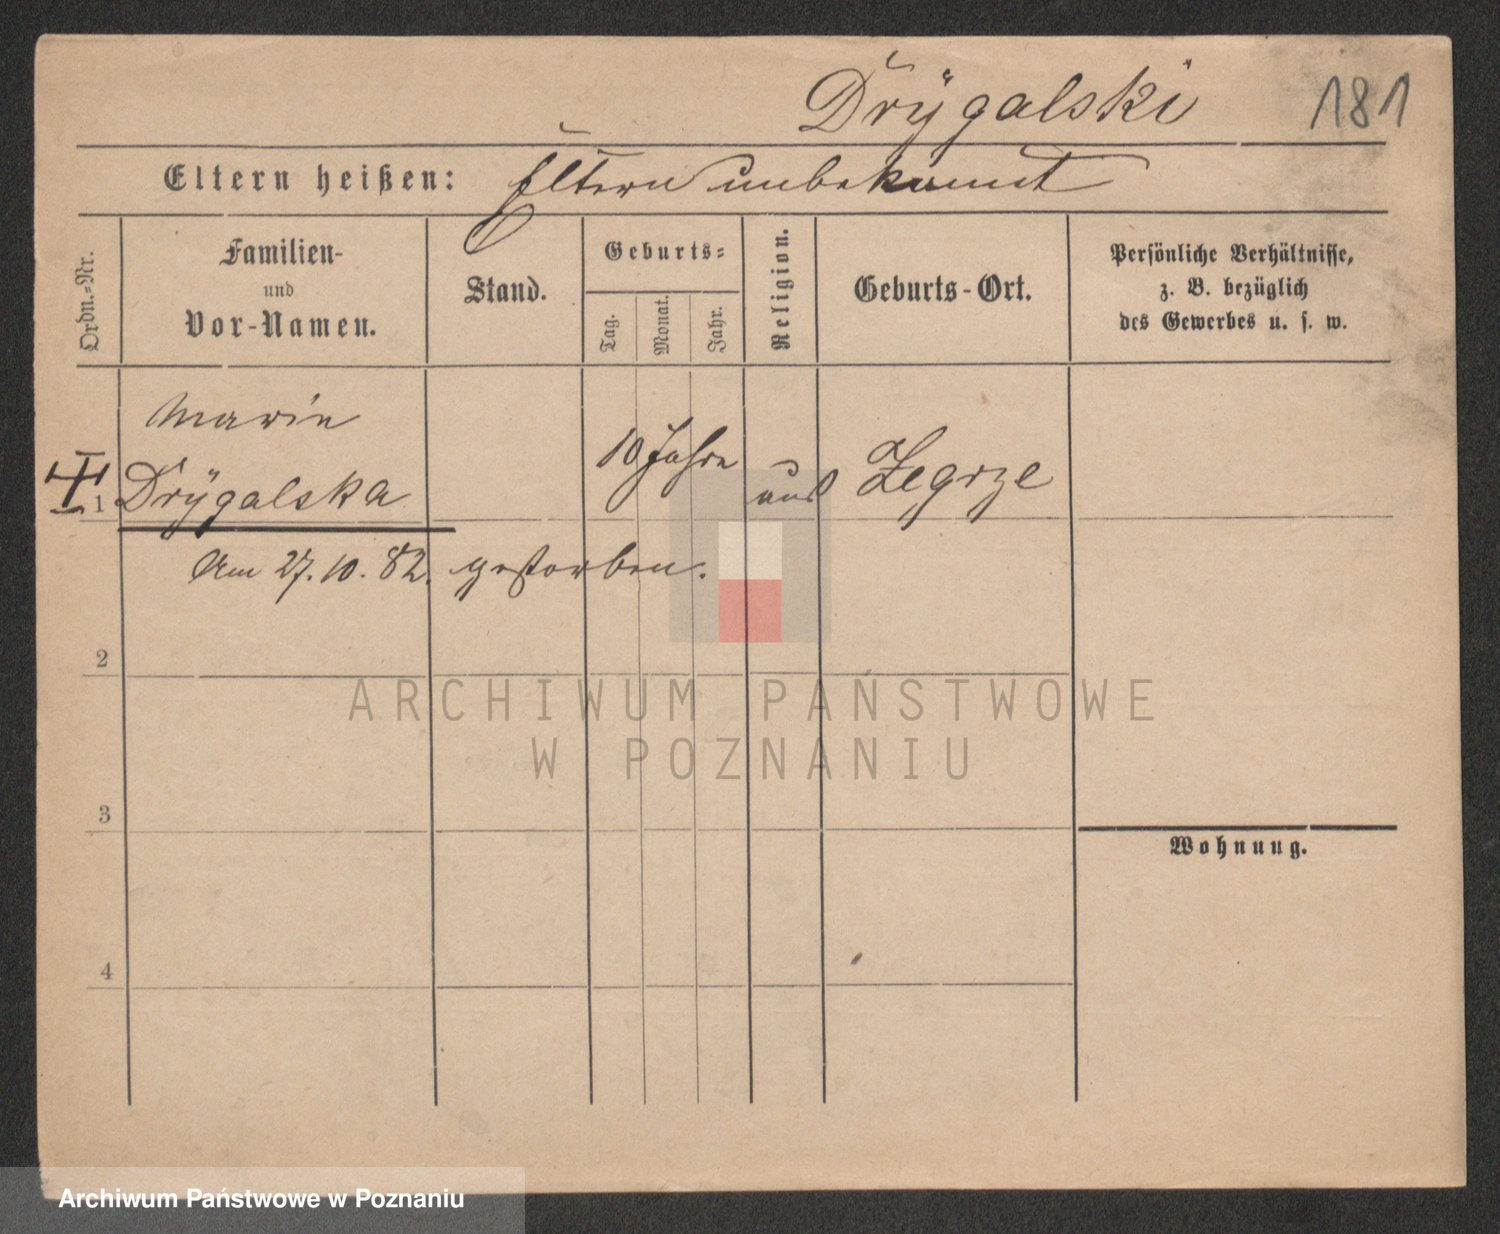 Drÿgalski 181
Eltern heißen: Eltern unbekannt
Ordn.-Nr.
Familien-
und
Vor-Namen.
Stand.
Geburts-
Tag.
Monat.
Jahr.
Religion.
Geburts-Ort.
Persönliche Verhältnisse,
z. B. bezüglich
des Gewerbes u. s. w.
Marie
1 Drÿgalska 10 Jahre aus Zegrze
Am 27. 10. 82. gestorben.
2
ARCHIWUM PAŃSTWOWE
W POZNANIU
3
Wohnung.
4
Archiwum Państwowe w Poznaniu